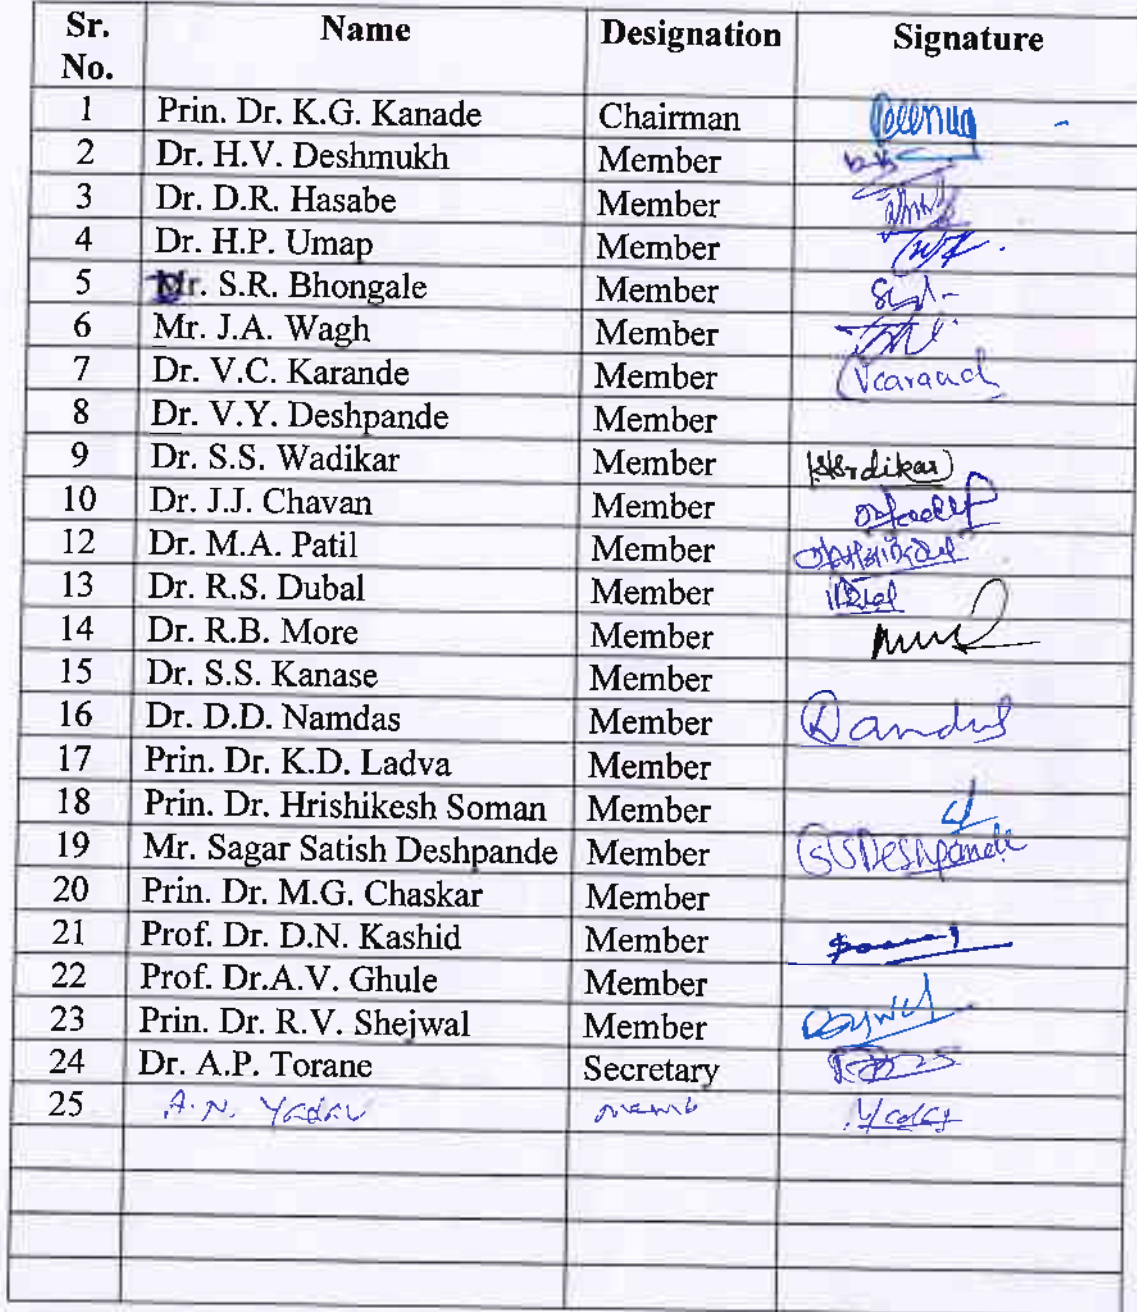 Sr. No. Name Designation Signature
1 Prin. Dr. K.G. Kanade Chairman
2 Dr. H.V. Deshmukh Member
3 Dr. D.R. Hasabe Member
4 Dr. H.P. Umap Member
5 Dr. S.R. Bhongale Member
6 Mr. J.A. Wagh Member
7 Dr. V.C. Karande Member
8 Dr. V.Y. Deshpande Member
9 Dr. S.S. Wadikar Member
10 Dr. J.J. Chavan Member
12 Dr. M.A. Patil Member
13 Dr. R.S. Dubal Member
14 Dr. R.B. More Member
15 Dr. S.S. Kanase Member
16 Dr. D.D. Namdas Member
17 Prin. Dr. K.D. Ladva Member
18 Prin. Dr. Hrishikesh Soman Member
19 Mr. Sagar Satish Deshpande Member SSDeshpande
20 Prin. Dr. M.G. Chaskar Member
21 Prof. Dr. D.N. Kashid Member
22 Prof. Dr.A.V. Ghule Member
23 Prin. Dr. R.V. Shejwal Member
24 Dr. A.P. Torane Secretary
25 A.N. Yadav memb